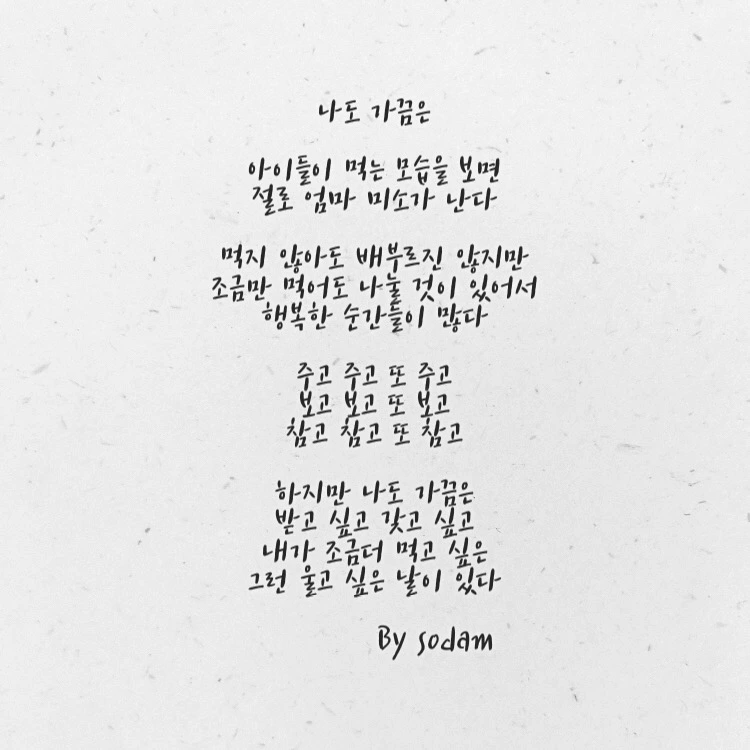 나도 가끔은
아이들이 먹는 모습을 보면
절로 엄마 미소가 난다
먹지 않아도 배부르진 않지만
조금만 먹어도 나눌 것이 있어서
행복한 순간들이 많다
주고 주고 또 주고
보고 보고 또 보고
참고 참고 또 참고
하지만 나도 가끔은
받고 싶고 갖고 싶고
내가 조금더 먹고 싶은
그런 울고 싶은 날이 있다
By sodam